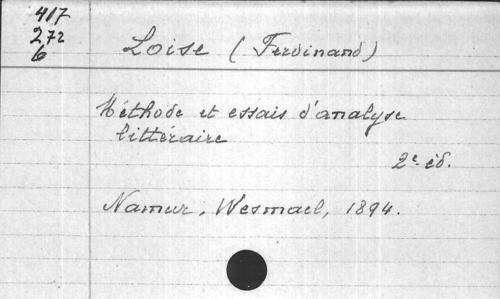 417
272
6
Loise (Ferdinand)
Méthode et essais d'analyse
littéraire
2e éd.
Namur, Wesmael, 1894.